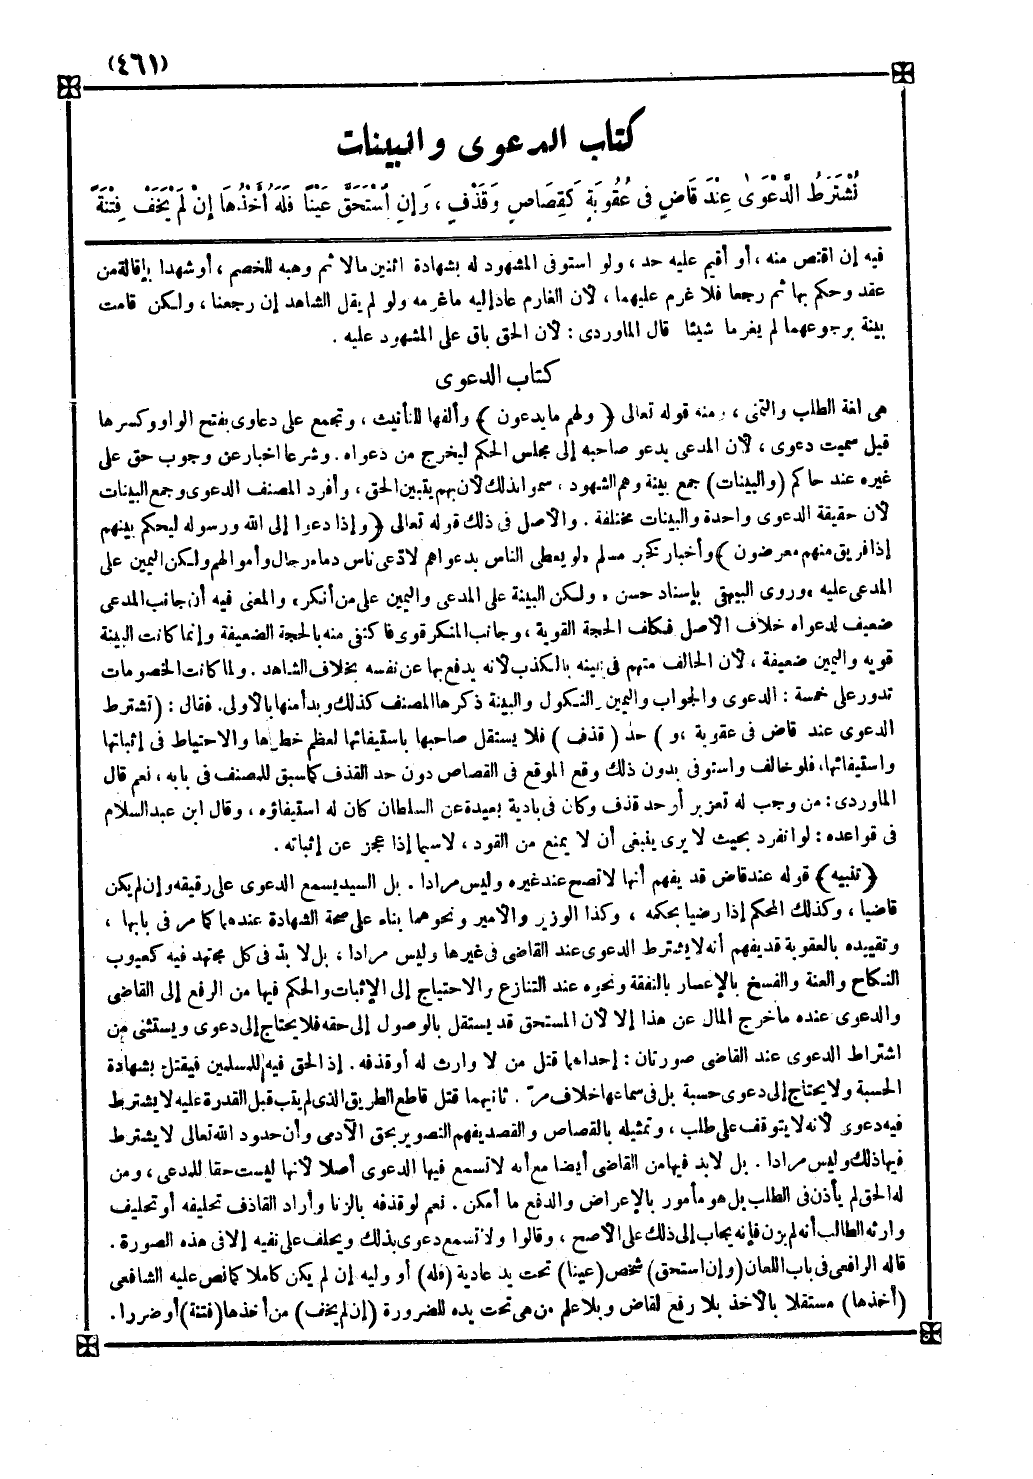 (٤٦١)
كتاب الدعوى والبينات
تُشْتَرَطُ الدَّعْوَىٰ عِنْدَ قَاضٍ فى عُقُوبَةٍ كَقِصَاصٍ وَقَذْفٍ ، وَإِنِ ٱسْتَحَقَّ عَيْنًا فَلَهُ أَخْذُهَا إِنْ لَمْ يَخَفْ فِتْنَةً
فيه إن اقتص منه ، أو أقيم عليه حد ، ولو استوفى المشهود له بشهادة اثنين مالا ثم وهبه للخصم ، أو شهدا بإقالة من
عقد وحكم بها ثم رجعا فلا غرم عليهما ، لأن الغارم عاد إليه ماغرمه ولو لم يقل الشاهد إن رجعنا ، ولكن قامت
بينة برجوعهما لم يغرما شيئا قال الماوردى : لأن الحق باق على المشهود عليه .
كتاب الدعوى
هى لغة الطلب والتمنى ، ومنه قوله تعالى ﴿ ولهم مايدعون ﴾ وألفها للتأنيث ، وتجمع على دعاوى بفتح الواو وكسرها
قيل سميت دعوى ، لأن المدعى يدعو صاحبه إلى مجلس الحكم ليخرج من دعواه . وشرعا اخبار عن وجوب حق على
غيره عند حاكم (والبينات) جمع بينة وهم الشهود ، سموا بذلك لأن بهم يتبين الحق ، وأفرد المصنف الدعوى وجمع البينات
لأن حقيقة الدعوى واحدة والبينات مختلفة . والأصل فى ذلك قوله تعالى ﴿ وإذا دعوا إلى الله ورسوله ليحكم بينهم
إذا فريق منهم معرضون ﴾ وأخبار كخبر مسلم «لو يعطى الناس بدعواهم لادّعى ناس دماء رجال وأموالهم ولكن اليمين على
المدعى عليه» وروى البيهقى بإسناد حسن «ولكن البينة على المدعى واليمين على من أنكر» والمعنى فيه أن جانب المدعى
ضعيف لدعواه خلاف الأصل فكلف الحجة القوية ، وجانب المنكر قوى فاكتفى منه بالحجة الضعيفة وإنما كانت البينة
قويه واليمين ضعيفة ، لأن الحالف متهم فى يمينه بالكذب لأنه يدفع بها عن نفسه بخلاف الشاهد . ولما كانت الخصومات
تدور على خمسة : الدعوى والجواب واليمين والنكول والبينة ذكرها المصنف كذلك وبدأ منها بالأولى. فقال : (تشترط
الدعوى عند قاض فى عقوبة ، و ) حد ( قذف ) فلا يستقل صاحبها باستيفائها لعظم خطرها والاحتياط فى إثباتها
واستيفائها، فلو خالف واستوفى بدون ذلك وقع الموقع فى القصاص دون حد القذف كما سبق للمصنف فى بابه ، نعم قال
الماوردى : من وجب له تعزير أو حد قذف وكان فى بادية بعيدة عن السلطان كان له استيفاؤه ، وقال ابن عبدالسلام
فى قواعده : لو انفرد بحيث لا يرى ينبغى أن لا يمنع من القود ، لاسيما إذا عجز عن إثباته .
﴿تنبيه﴾ قوله عند قاض قد يفهم أنها لا تصح عند غيره وليس مرادا . بل السيد يسمع الدعوى على رقيقه وإن لم يكن
قاضيا ، وكذلك المحكم إذا رضيا بحكمه ، وكذا الوزير والأمير ونحوهما بناء على صحة الشهادة عندهما كما مر فى بابها ،
وتقييده بالعقوبة قد يفهم أنه لا يشترط الدعوى عند القاضى فى غيرها وليس مرادا ، بل لا بد فى كل مجتهد فيه كعيوب
النكاح والعنة والفسخ بالإعسار بالنفقة ونحوه عند التنازع والاحتياج إلى الإثبات والحكم فيها من الرفع إلى القاضى
والدعوى عنده ماخرج المال عن هذا إلا لأن المستحق قد يستقل بالوصول إلى حقه فلا يحتاج إلى دعوى ويستثنى من
اشتراط الدعوى عند القاضى صورتان : إحداهما قتل من لا وارث له أو قذفه . إذ الحق فيه للمسلمين فيقتل بشهادة
الحسبة ولا يحتاج إلى دعوى حسبة بل فى سماعها خلاف مرّ . ثانيهما قتل قاطع الطريق الذى لم يتب قبل القدرة عليه لا يشترط
فيه دعوى لأنه لا يتوقف على طلب ، وتمثيله بالقصاص والقصد يفهم التصوير بحق الآدمى وأن حدود الله تعالى لا يشترط
فيها ذلك وليس مرادا . بل لابد فيها من القاضى أيضا مع أنه لا تسمع فيها الدعوى أصلا لأنها ليست حقا للمدعى ، ومن
له الحق لم يأذن فى الطلب بل هو مأمور بالإعراض والدفع ما أمكن . نعم لو قذفه بالزنا وأراد القاذف تحليفه أو تحليف
وارثه الطالب أنه لم يزن فإنه يجاب إلى ذلك على الأصح ، وقالوا ولا تسمع دعوى بذلك ويحلف على نفيه إلا فى هذه الصورة .
قاله الرافعى فى باب اللعان (وإن استحق) شخص (عينا) تحت يد عادية (فله) أو وليه إن لم يكن كاملا كما نص عليه الشافعى
(أخذها) مستقلا بالأخذ بلا رفع لقاض وبلا علم من هى تحت يده للضرورة (إن لم يخف) من أخذها (فتنة) أو ضررا .